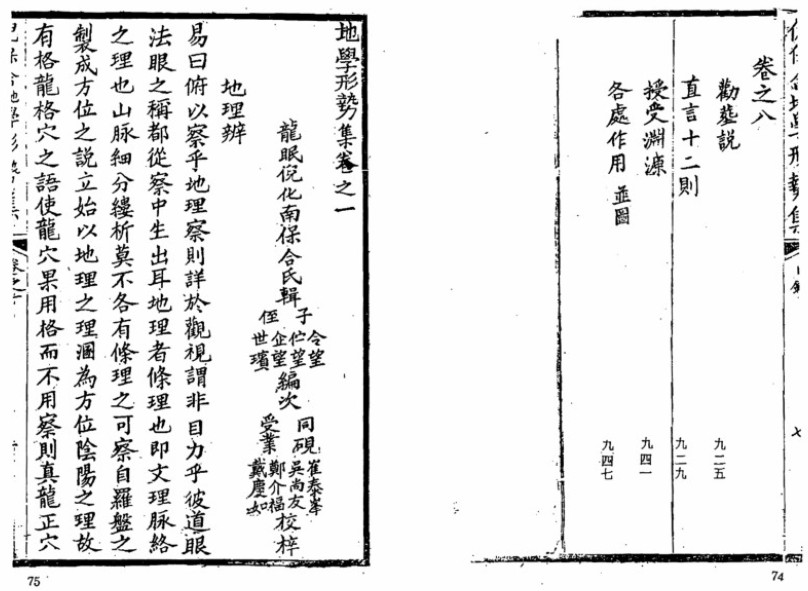 倪保合地學形勢集
目錄
七
卷之八
勸塟説
九二五
直言十二則
九二九
授受淵源
九四一
各處作用並圖
九四七
74
地學形勢集卷之一
龍眠倪化南保合氏輯
子
令望
伫望
侄
企望
世璸
編次
同硯
崔泰峯
吳尚友
受業
鄭介福
戴慶如
校梓
地理辨
易曰俯以察乎地理察則詳於觀視謂非目力乎彼道眼
法眼之稱都從察中生出耳地理者條理也即文理脉絡
之理也山脉細分縷析莫不各有條理之可察自羅盤之
製成方位之説立始以地理之理溷為方位陰陽之理故
有格龍格穴之語使龍穴果用格而不用察則真龍正穴
倪保合地學形勢集
卷之一
75